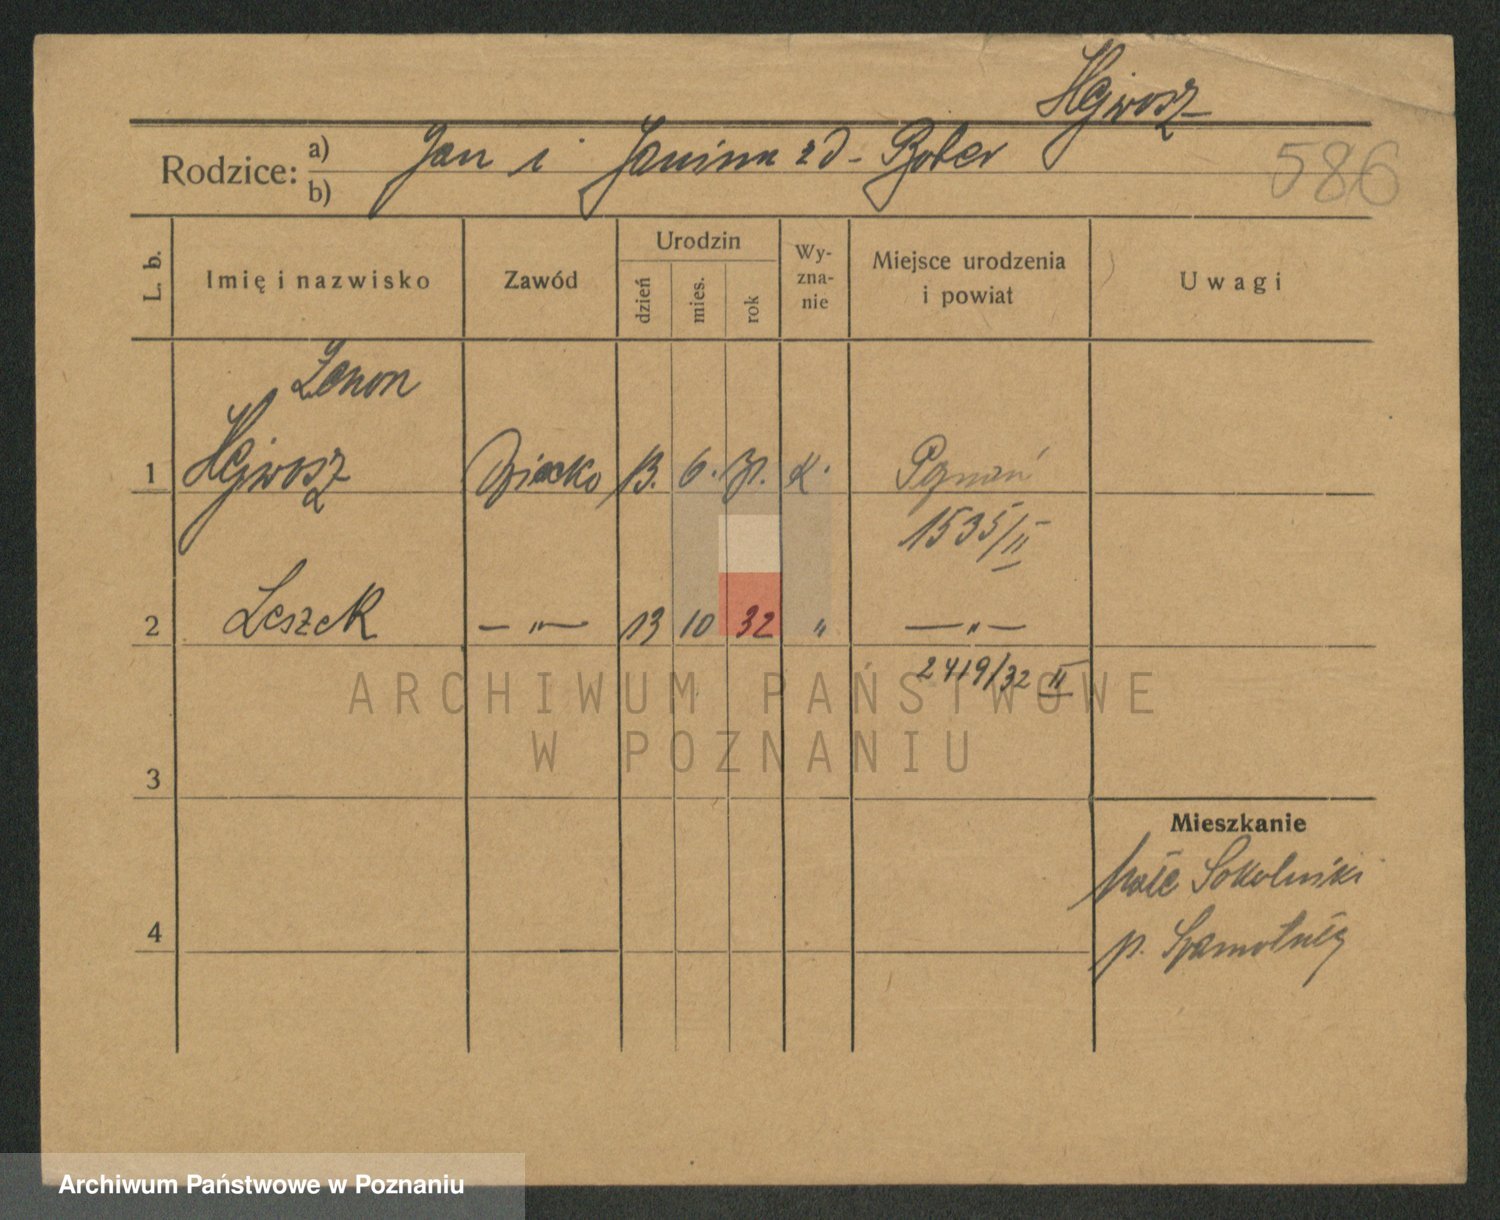 Hejwosz
Rodzice: a) Jan i Janina zd-
b)
586
L. b.
Imię i nazwisko
Zawód
Urodzin
dzień
mies.
rok
Wy-
zna-
nie
Miejsce urodzenia
i powiat
Uwagi
Zenon
1 Hejwosz Dziecko 13. 6. 31. k.
1535/II
2 Leszek — „ — 13 10 32 „ — „ —
2419/32 II
ARCHIWUM PAŃSTWOWE
W POZNANIU
3
Mieszkanie
Sokolniki
4
p. Szamotuły
Archiwum Państwowe w Poznaniu